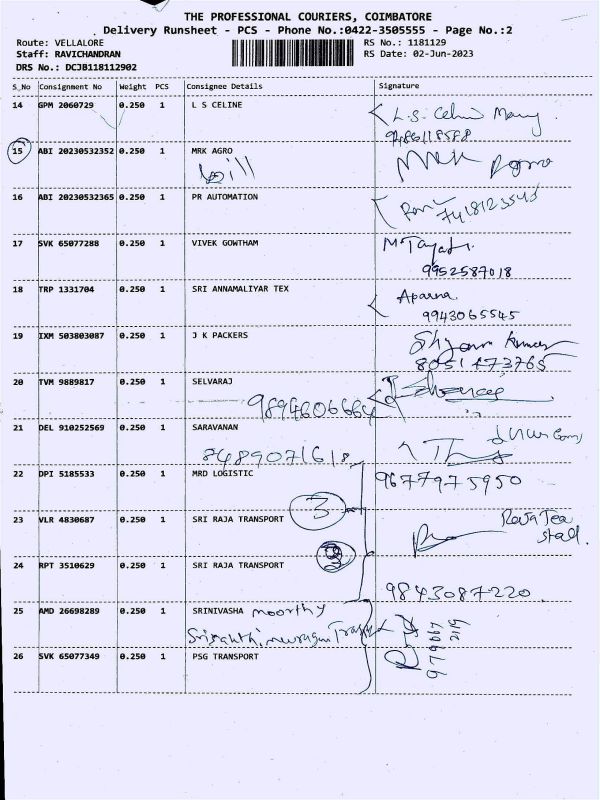 THE PROFESSIONAL COURIERS, COIMBATORE
Delivery Runsheet - PCS - Phone No.:0422-3505555 - Page No.:2
Route: VELLALORE RS No.: 1181129
Staff: RAVICHANDRAN RS Date: 02-Jun-2023
DRS No.: DCJB118112902
S_No Consignment No Weight PCS Consignee Details Signature
14 GPM 2060729 0.250 1 L S CELINE L.S. Celin Mary
9486118588
15 ABI 20230532352 0.250 1 MRK AGRO MRK Agro
bill
16 ABI 20230532365 0.250 1 PR AUTOMATION
17 SVK 65077288 0.250 1 VIVEK GOWTHAM
9952587018
18 TRP 1331704 0.250 1 SRI ANNAMALIYAR TEX Aparna
9943065545
19 IXM 503803087 0.250 1 J K PACKERS Shyam Kumar
8051473765
20 TVM 9889817 0.250 1 SELVARAJ
9894606664
21 DEL 910252569 0.250 1 SARAVANAN
8489071618
22 DPI 5185533 0.250 1 MRD LOGISTIC 9677975950
3
23 VLR 4830687 0.250 1 SRI RAJA TRANSPORT Raja Tea
stall.
24 RPT 3510629 0.250 1 SRI RAJA TRANSPORT
9843087220
25 AMD 26698289 0.250 1 SRINIVASHA moorthy
26 SVK 65077349 0.250 1 PSG TRANSPORT